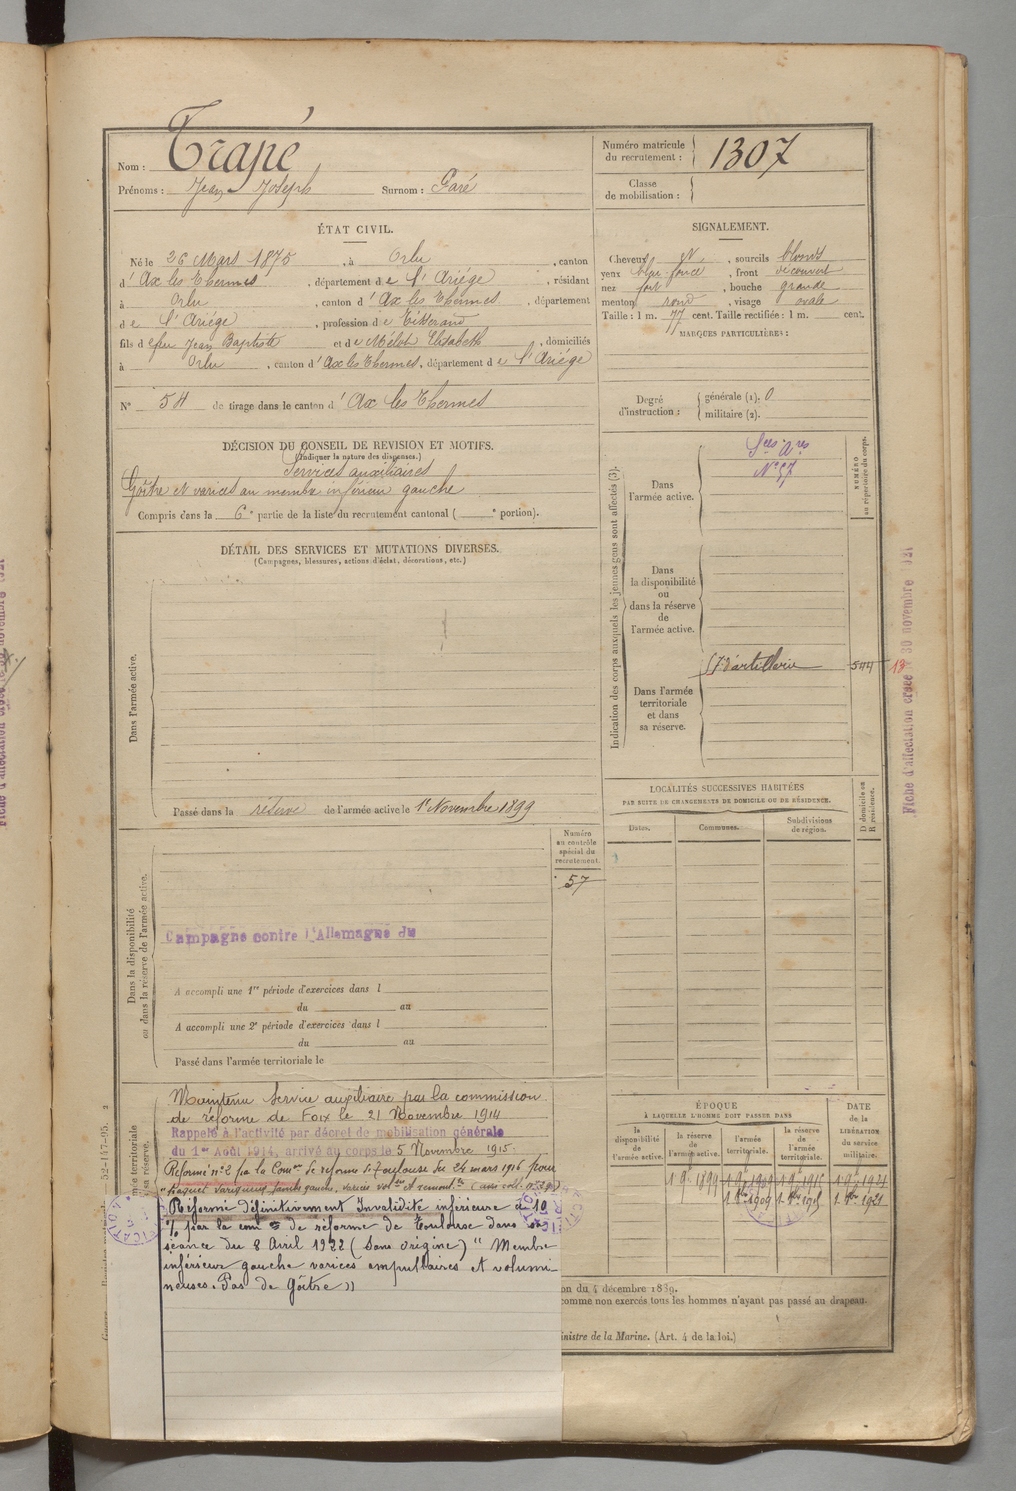 Nom : Trapé
Prénoms : Jean Joseph Surnom : Garé
Numéro matricule du recrutement : 1307
Classe de mobilisation :
ÉTAT CIVIL.
Né le 26 Mars 1875, à Orlu, canton
d' Ax les Thermes, département de l'Ariége, résidant
à Orlu, canton d' Ax les Thermes, département
de l'Ariége, profession de Tisserand
fils de feu Jean Baptiste et de Mélot Elisabeth, domiciliés
à Orlu, canton d' Ax les Thermes, département de l'Ariége
N° 54 de tirage dans le canton d' Ax les Thermes
SIGNALEMENT.
Cheveux id, sourcils blonds
yeux bleu foncé, front découvert
nez fort, bouche grande
menton rond, visage ovale
Taille : 1 m. 77 cent. Taille rectifiée : 1 m. cent.
MARQUES PARTICULIÈRES :
Degré d'instruction : générale (1). 0
militaire (2).
DÉCISION DU CONSEIL DE REVISION ET MOTIFS.
(Indiquer la nature des dispenses.)
Services auxiliaires
Goître et varices au membre inférieur gauche
Compris dans la 6e partie de la liste du recrutement cantonal ( e portion).
DÉTAIL DES SERVICES ET MUTATIONS DIVERSES.
(Campagnes, blessures, actions d'éclat, décorations, etc.)
Dans l'armée active.
Passé dans la réserve de l'armée active le 1er Novembre 1899
Indication des corps auxquels les jeunes gens sont affectés (3).
Dans l'armée active.
Sces Ares
N° 57
NUMÉRO au répertoire du corps.
Dans la disponibilité ou dans la réserve de l'armée active.
Dans l'armée territoriale et dans sa réserve.
57 d'artillerie 544 13
Fiche d'affectation créée le 30 novembre 1921
LOCALITÉS SUCCESSIVES HABITÉES
PAR SUITE DE CHANGEMENTS DE DOMICILE OU DE RÉSIDENCE.
Dates. Communes. Subdivisions de région. D domicile ou R résidence.
Dans la disponibilité ou dans la réserve de l'armée active.
Numéro au contrôle spécial du recrutement.
57
Campagne contre l'Allemagne du
A accompli une 1re période d'exercices dans l
du au
A accompli une 2e période d'exercices dans l
du au
Passé dans l'armée territoriale le
Maintenu Service auxiliaire par la commission
de réforme de Foix le 21 Novembre 1914
Rappelé à l'activité par décret de mobilisation générale
du 1er Août 1914, arrivé au corps le 5 Novembre 1915.
Réformé n° 2 par la Comon de réforme de Toulouse du 24 mars 1916 pour
Réformé définitivement Invalidité inférieure à 10
% par la comon de réforme de Toulouse dans sa
séance du 8 Avril 1922 (sans origine) " Membre
inférieur gauche varices ampullaires et volumi-
neuses. Pas de Goître "
ÉPOQUE
À LAQUELLE L'HOMME DOIT PASSER DANS
la disponibilité de l'armée active. la réserve de l'armée active. l'armée territoriale. la réserve de l'armée territoriale.
DATE de la LIBÉRATION du service militaire.
1 9bre 1899
1 9bre 1909 1 9bre 1915 1 9bre 1921
1. 8bre 1909 1. 8bre 1915 1. 8bre 1921
on du 4 décembre 1889.
comme non exercés tous les hommes n'ayant pas passé au drapeau.
inistre de la Marine. (Art. 4 de la loi.)